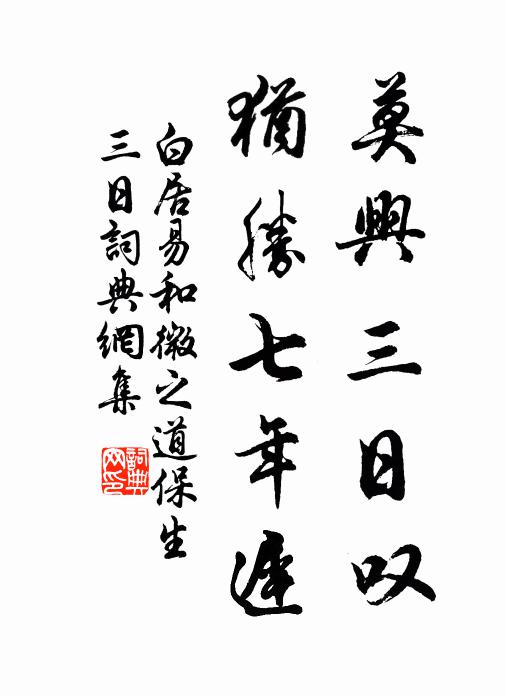 莫興三日叹
猶勝七年遲
白居易和微之道保生
三日詞典網集
詞典网印